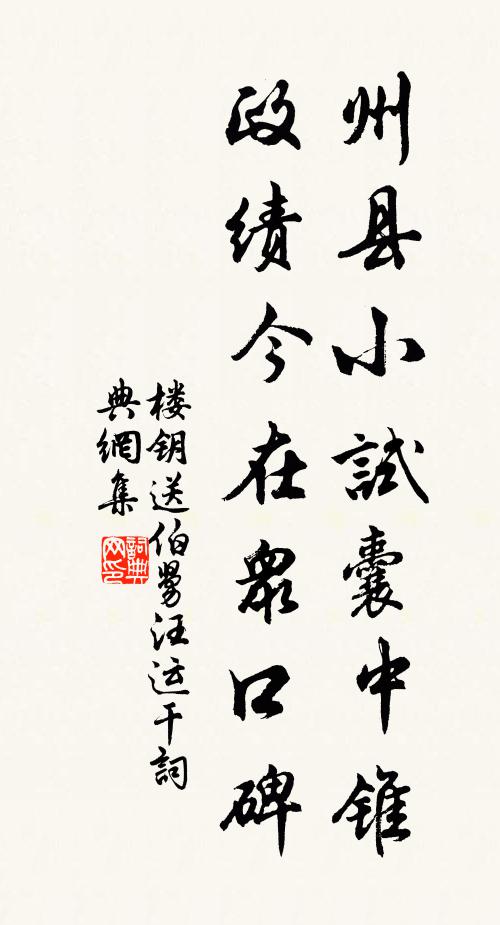 州县小試囊中锥
政绩今在眾口碑
楼钥送伯舅汪运干詞
典網集
詞典網印